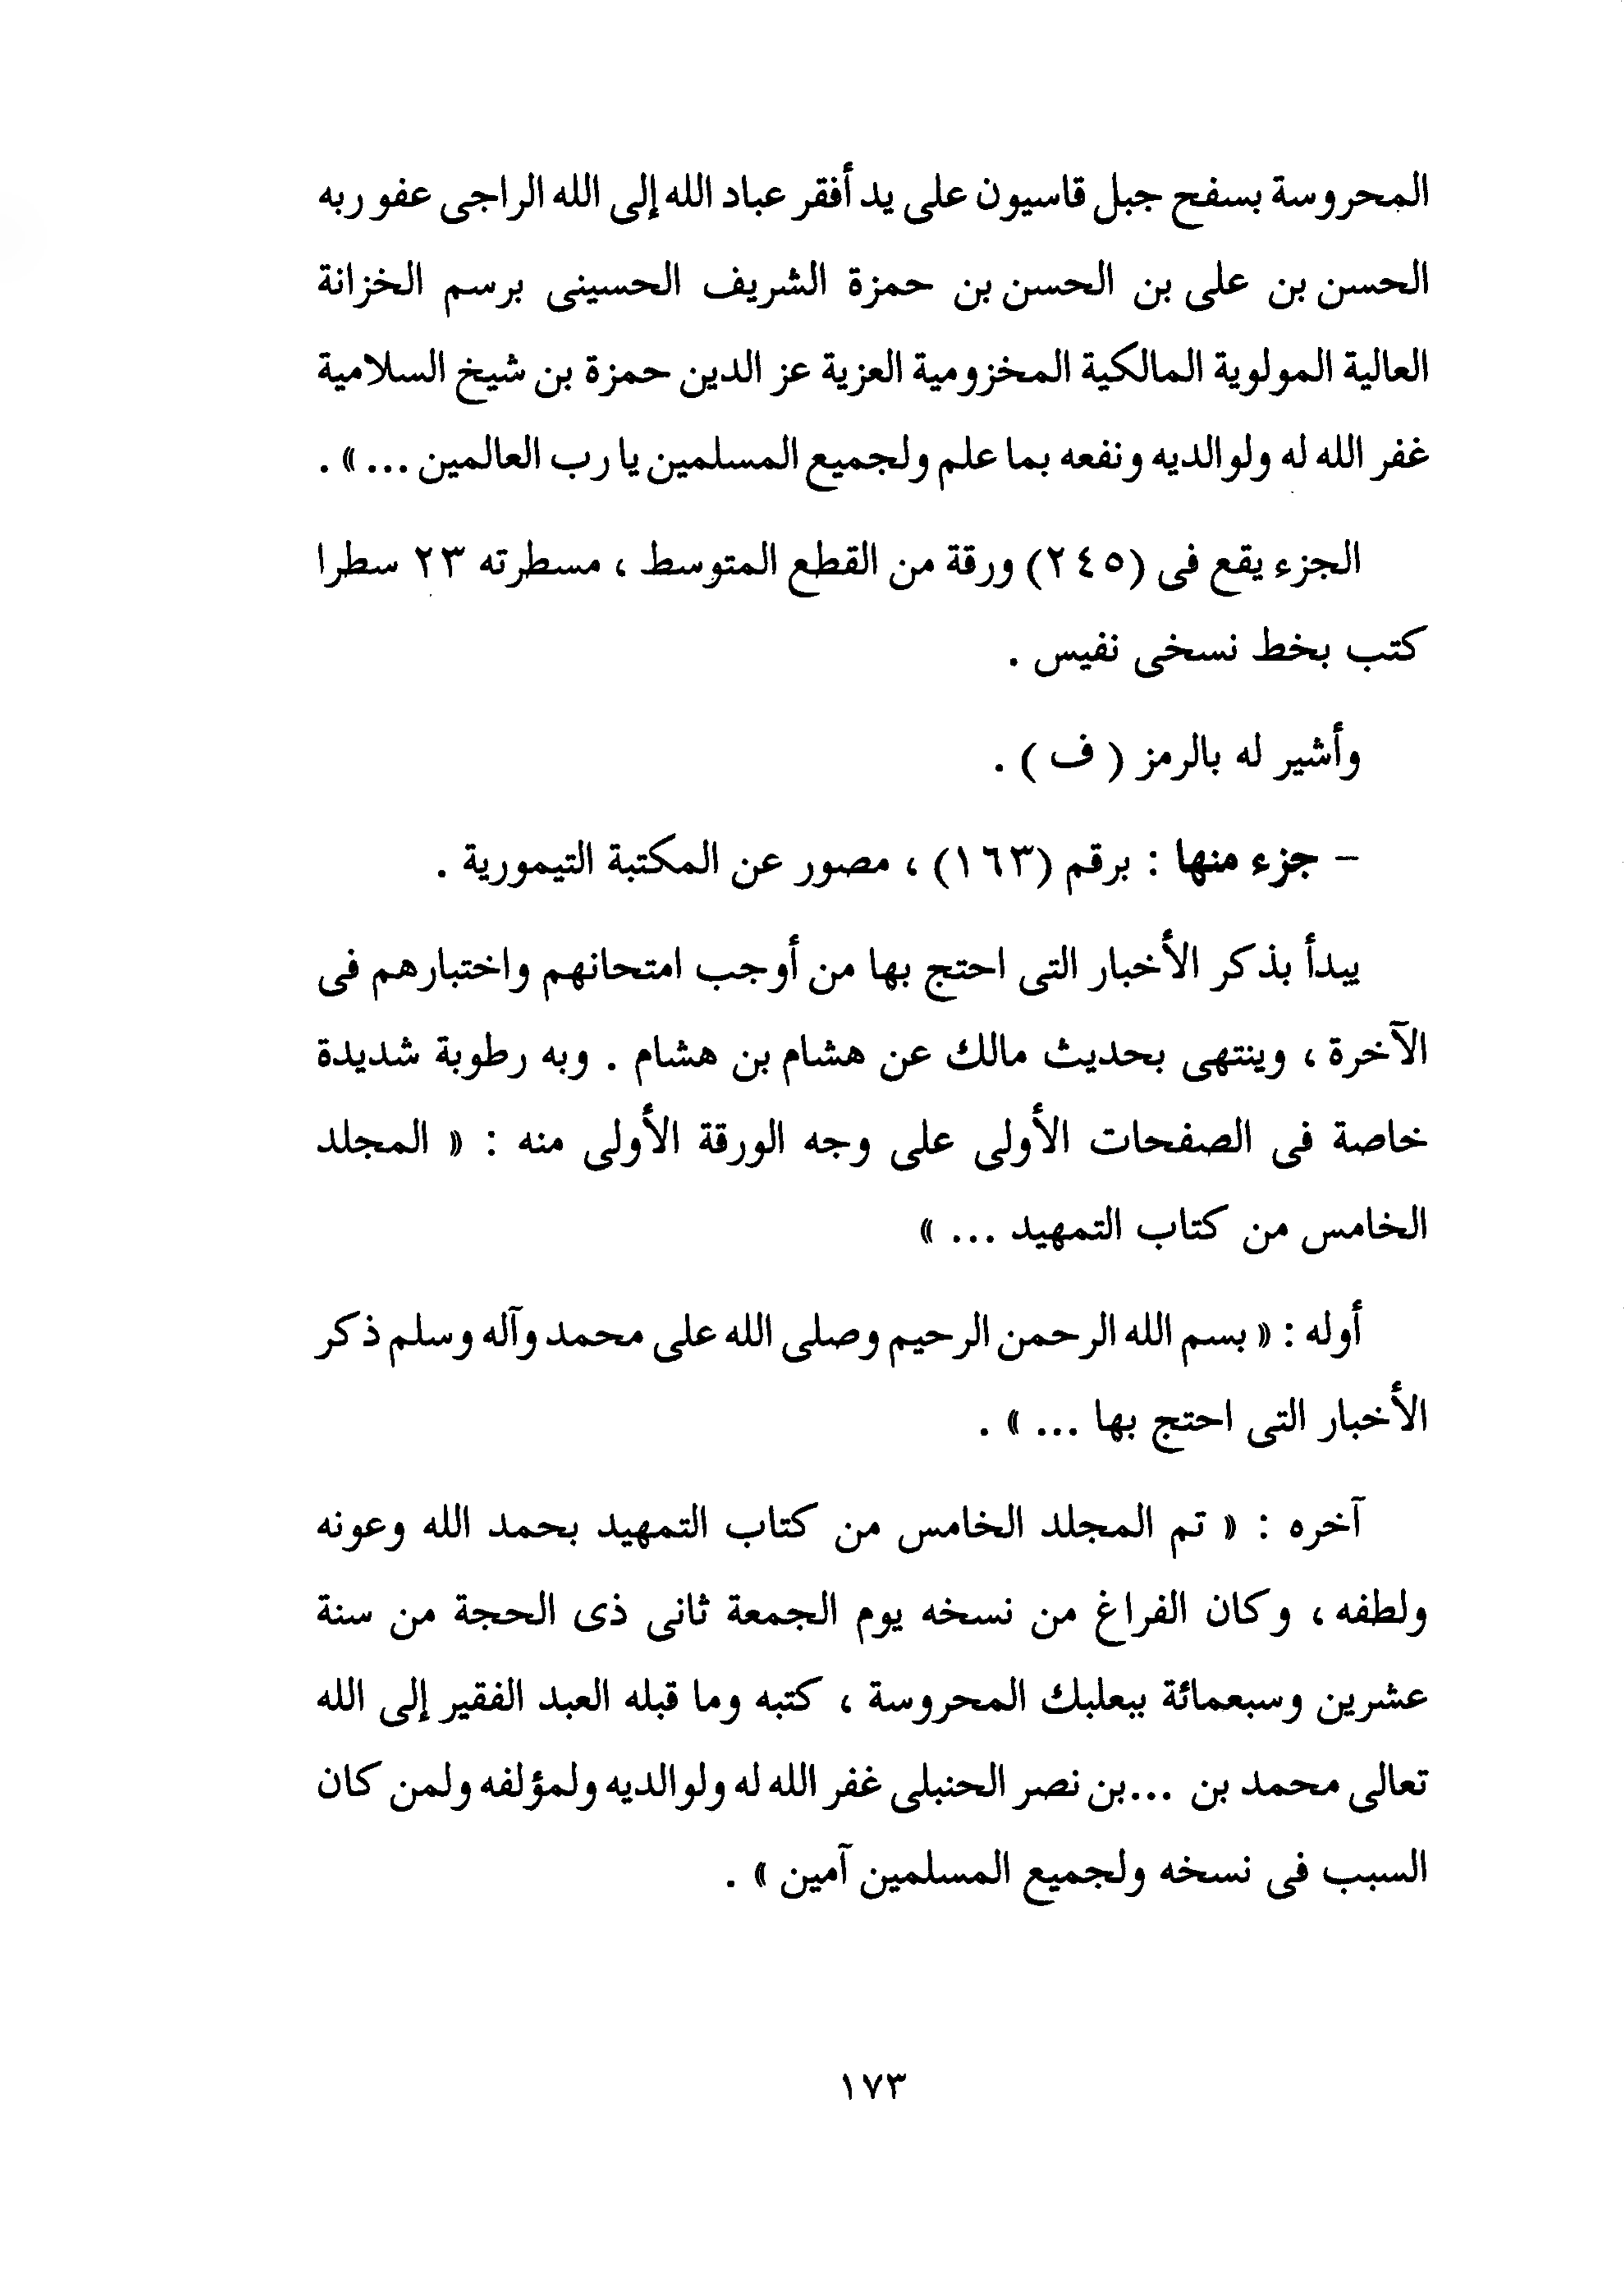 المحروسة بسفح جبل قاسيون على يد أفقر عباد الله إلى الله الراجى عفو ربه
الحسن بن على بن الحسن بن حمزة الشريف الحسينى برسم الخزانة
العالية المولوية المالكية المخزومية العزية عز الدين حمزة بن شيخ السلامية
غفر الله له ولوالديه ونفعه بما علم ولجميع المسلمين يا رب العالمين ... » .
الجزء يقع فى (٢٤٥) ورقة من القطع المتوسط ، مسطرته ٢٣ سطرا
كتب بخط نسخى نفيس .
وأشير له بالرمز ( ف ) .
– جزء منها : برقم (١٦٣) ، مصور عن المكتبة التيمورية .
يبدأ بذكر الأخبار التى احتج بها من أوجب امتحانهم واختبارهم فى
الآخرة ، وينتهى بحديث مالك عن هشام بن هشام . وبه رطوبة شديدة
خاصة فى الصفحات الأولى على وجه الورقة الأولى منه : « المجلد
الخامس من كتاب التمهيد ... »
أوله : « بسم الله الرحمن الرحيم وصلى الله على محمد وآله وسلم ذكر
الأخبار التى احتج بها ... » .
آخره : « تم المجلد الخامس من كتاب التمهيد بحمد الله وعونه
ولطفه ، وكان الفراغ من نسخه يوم الجمعة ثانى ذى الحجة من سنة
عشرين وسبعمائة ببعلبك المحروسة ، كتبه وما قبله العبد الفقير إلى الله
تعالى محمد بن ...بن نصر الحنبلى غفر الله له ولوالديه ولمؤلفه ولمن كان
السبب فى نسخه ولجميع المسلمين آمين » .
١٧٣